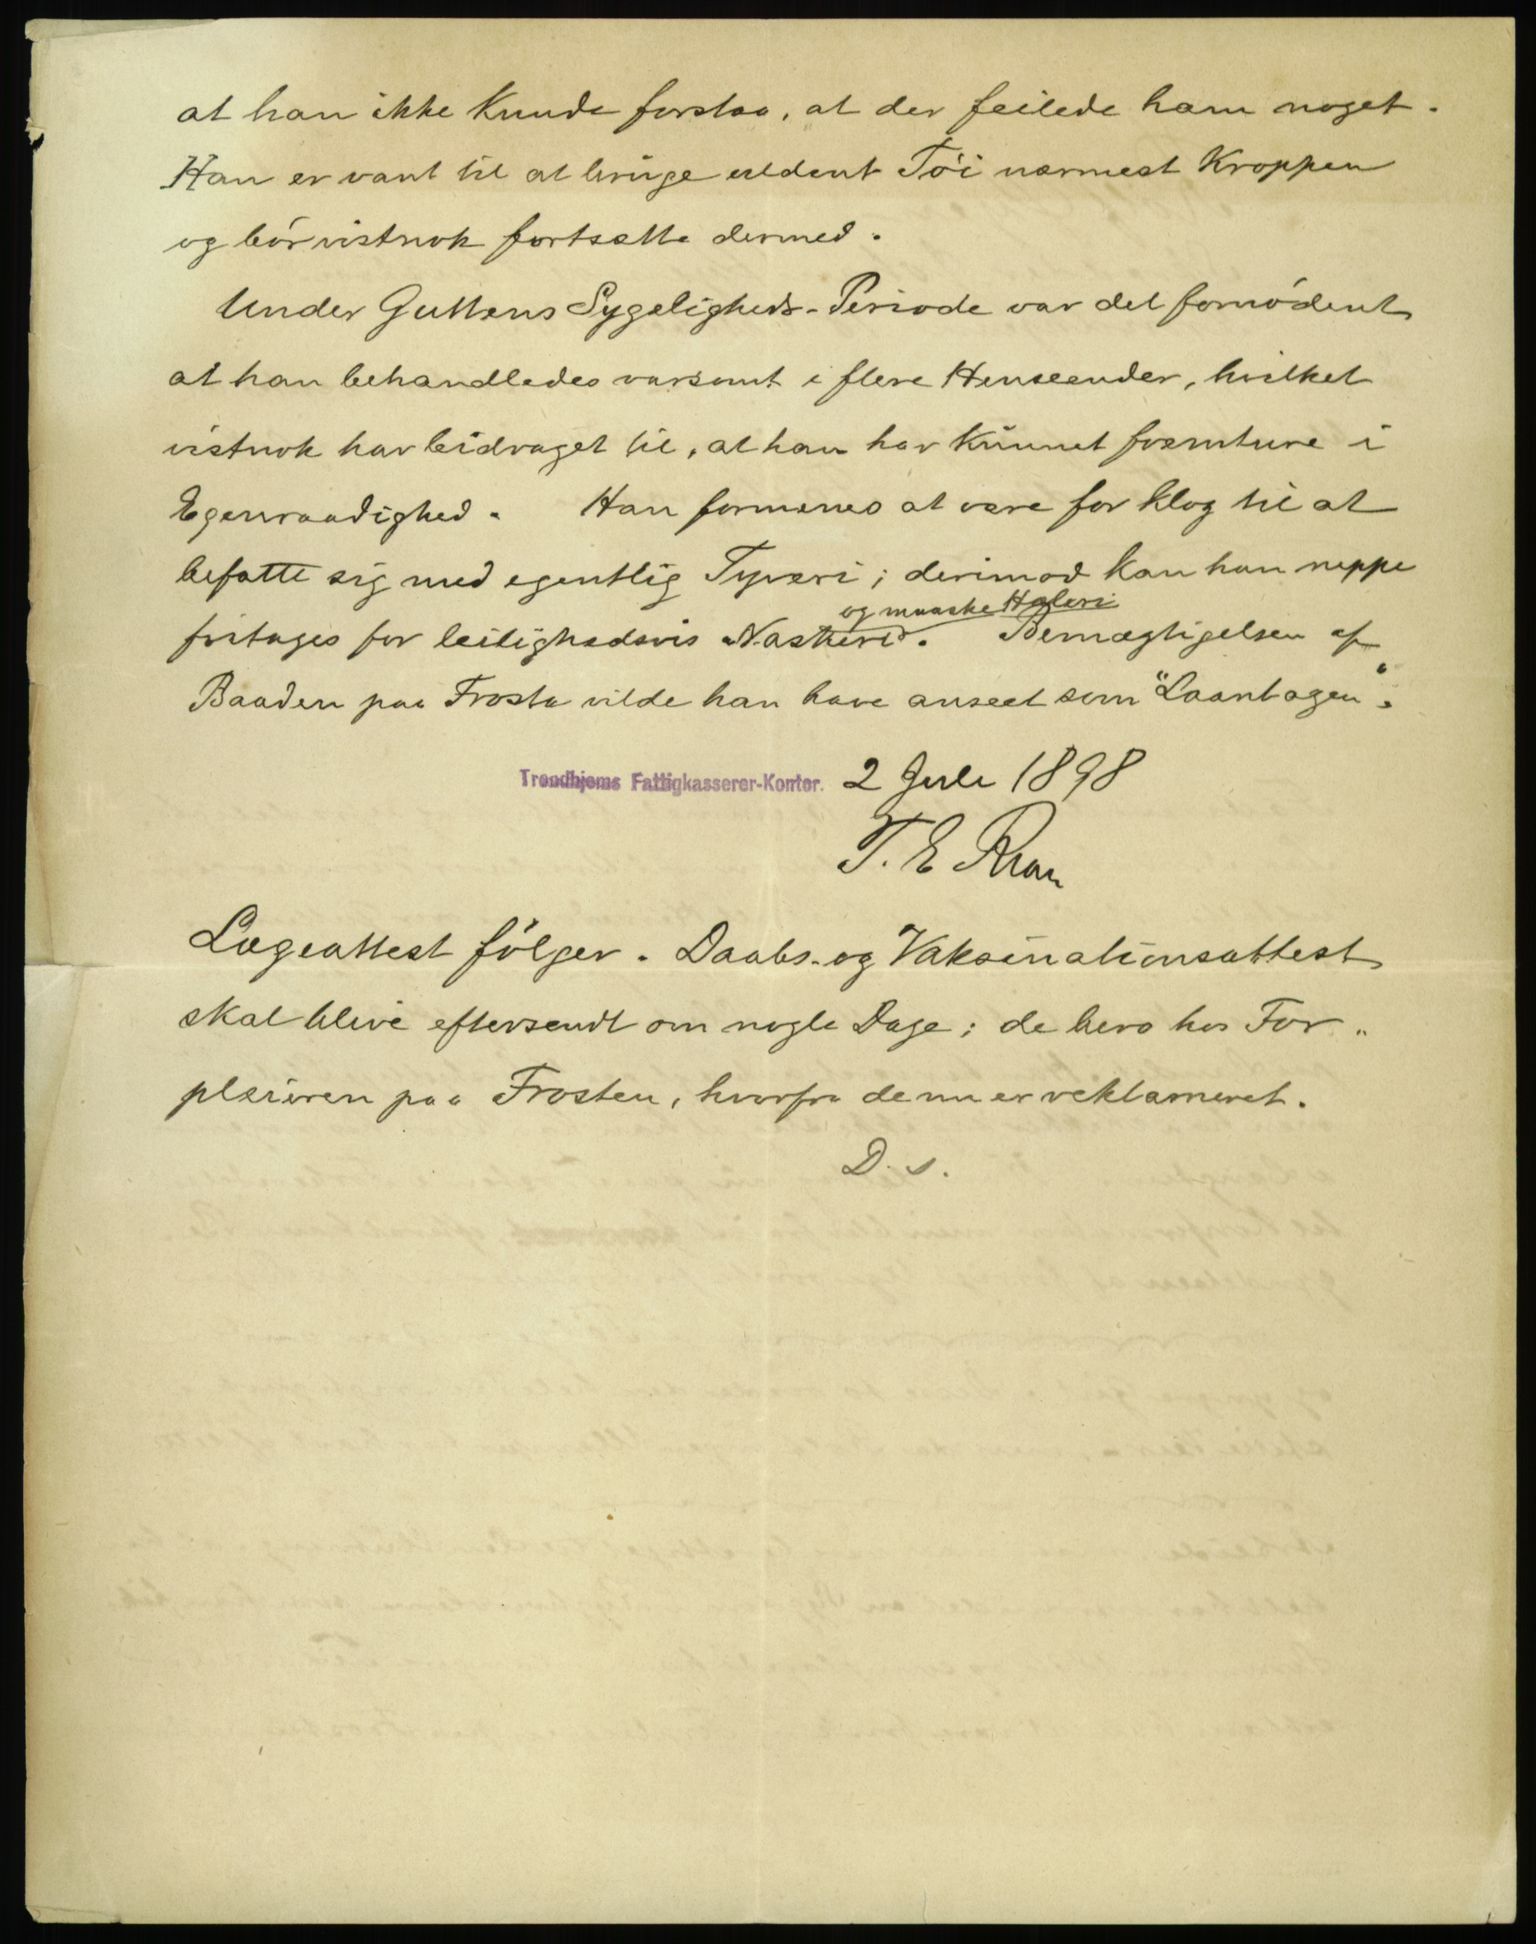 at han ikke kunde forstaa, at der feilede ham noget.
Han er vant til at bruge uldent Tøi nærmest Kroppen
og bør vistnok fortsætte dermed.
Under Guttens Sygeligheds-Periode var det fornødent
at han behandledes varsomt i flere Henseender, hvilket
vistnok har bidraget til, at han har kunnet fremture i
Egenraadighed. Han formenes at være for klog til at
befatte sig med egentlig Tyveri; derimod kan han neppe
og maaske Hæleri
fritages for leilighedsvis Naskeri. Bemægtigelsen af
Baaden paa Frosta vilde han have anseet som "Laantagen".
Trondhjems Fattigkasserer-Kontor. 2 Juli 1898
T. E.
Lægeattest følger. Daabs- og Vaksinationsattest
skal blive eftersendt om nogle Dage; de bero hos For„
pleieren paa Frosten, hvorfra de nu er reklameret.
D. s.